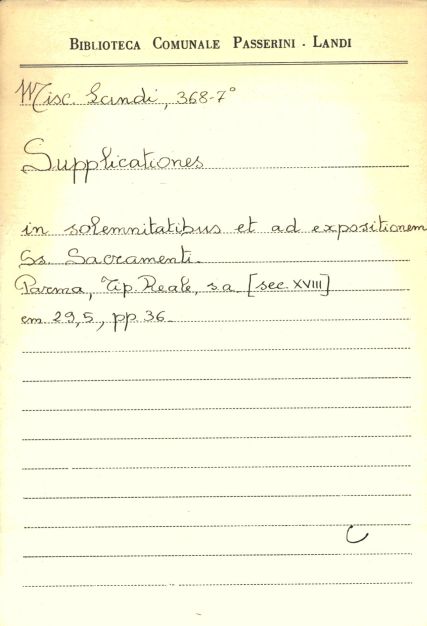 BIBLIOTECA COMUNALE PASSERINI - LANDI
Misc. Landi, 368-7°
Supplicationes
in solemnitatibus et ad expositionem
Ss. Sacramenti.
Parma, Tip. Reale, s.a. [sec. XVIII]
cm 29,5, pp. 36.
C